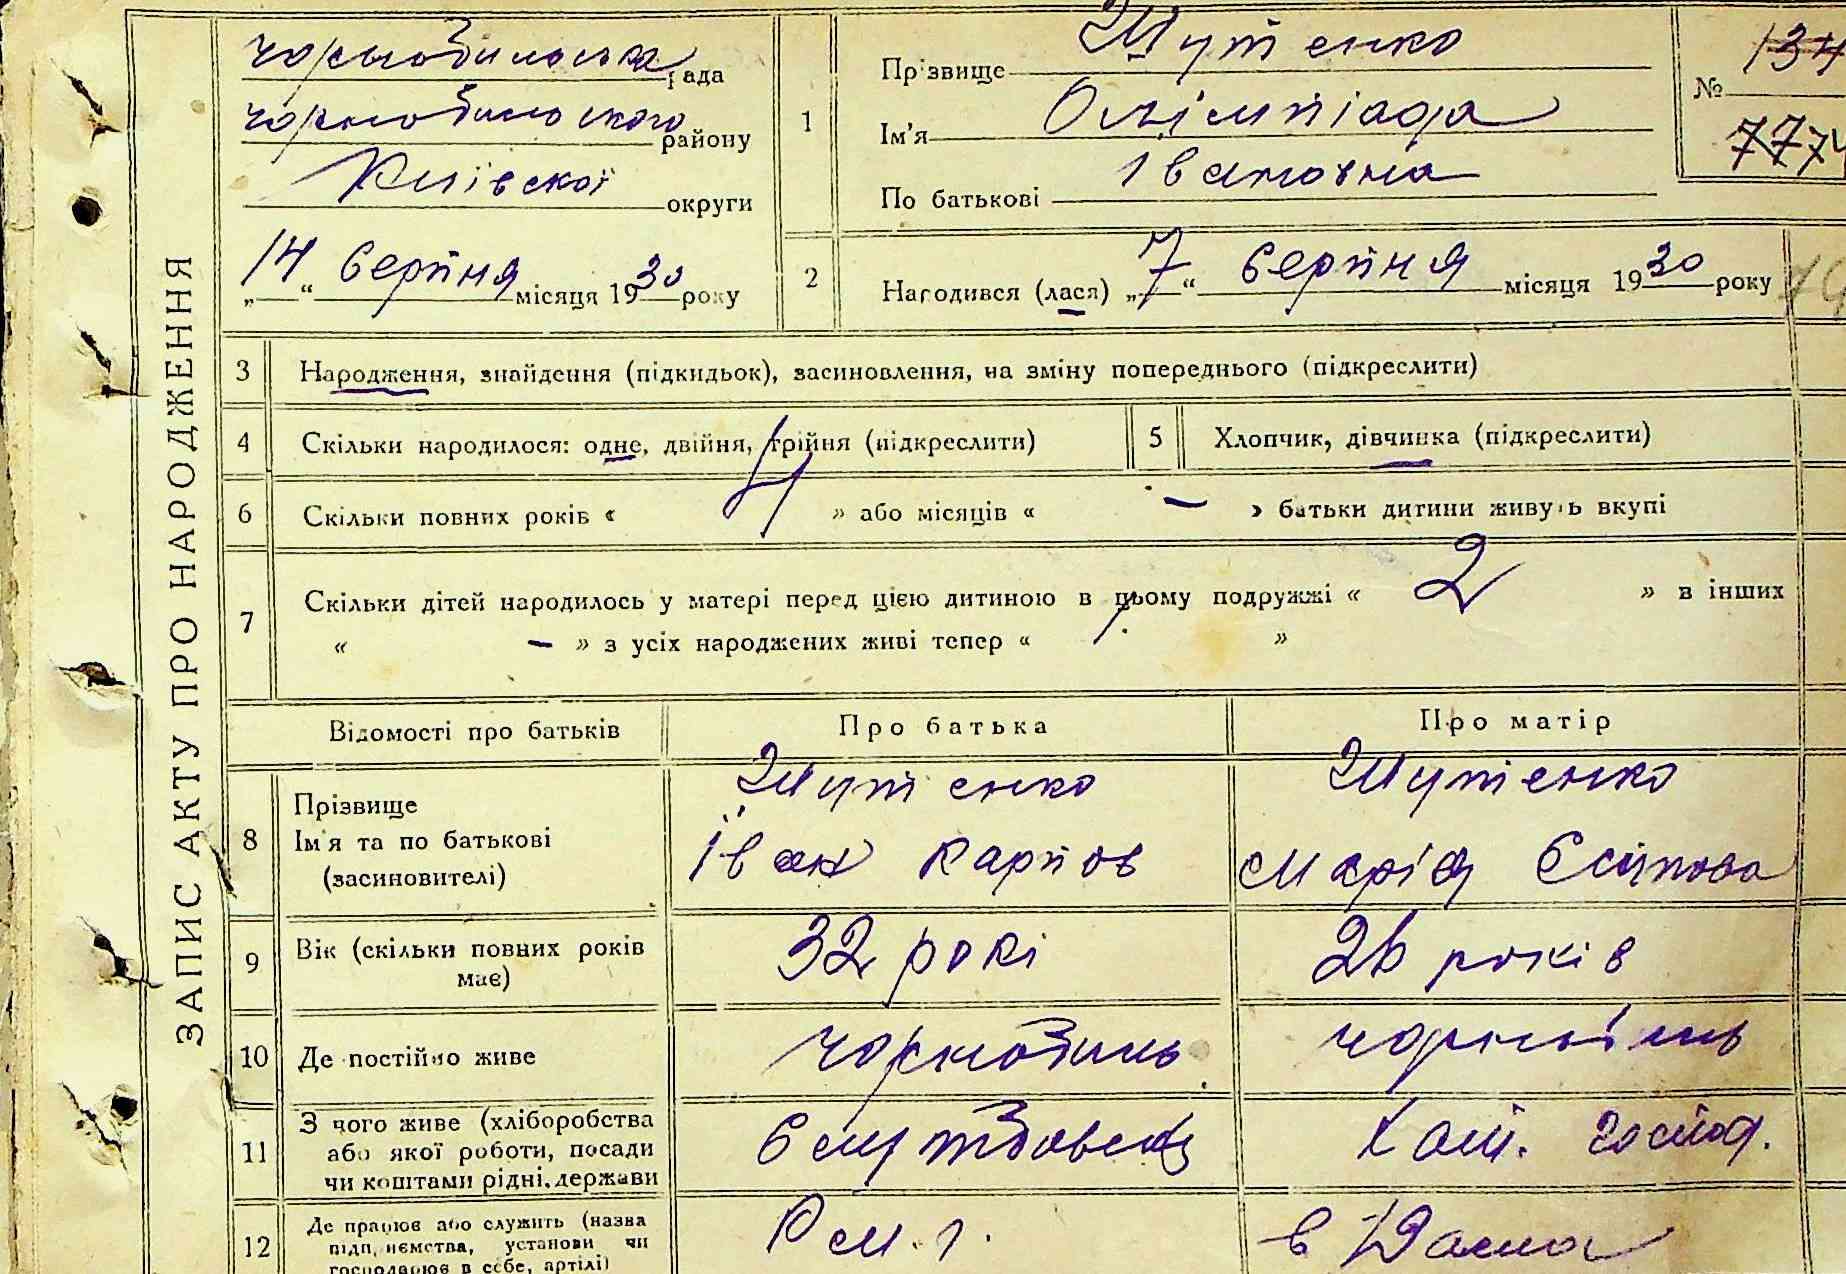 ЗАПИС АКТУ ПРО НАРОДЖЕННЯ
чорнобильська рада
чорнобильського району
Київскої округи
„14“ Серпня місяця 1930 року
1
Прізвище Шутенко
Ім'я Олімпіада
По батькові Івановна
№ 134
777
2 Народився (лася) „7“ Серпня місяця 1930 року
3 Народження, знайдення (підкидьок), засиновлення, на зміну попереднього (підкреслити)
4 Скільки народилося: одне, двійня, трійня (підкреслити)
5 Хлопчик, дівчинка (підкреслити)
6 Скільки повних років « 4 » або місяців « – » батьки дитини живуть вкупі
7 Скільки дітей народилось у матері перед цією дитиною в цьому подружжі « 2 » в інших
« – » з усіх народжених живі тепер « »
Відомості про батьків Про батька Про матір
8 Прізвище
Ім'я та по батькові
(засиновителі)
Шутенко
Іван Карпов
Шутенко
Марія Єсипова
9 Вік (скільки повних років
має)
32 рокі
26 років
10 Де постійно живе
чорнобиль
чорнобиль
11 З чого живе (хліборобства
або якої роботи, посади
чи коштами рідні, держави
хат. господ.
12 Де працює або служить (назва
підприємства, установи чи
господарює в себе, артілі)
в Дома